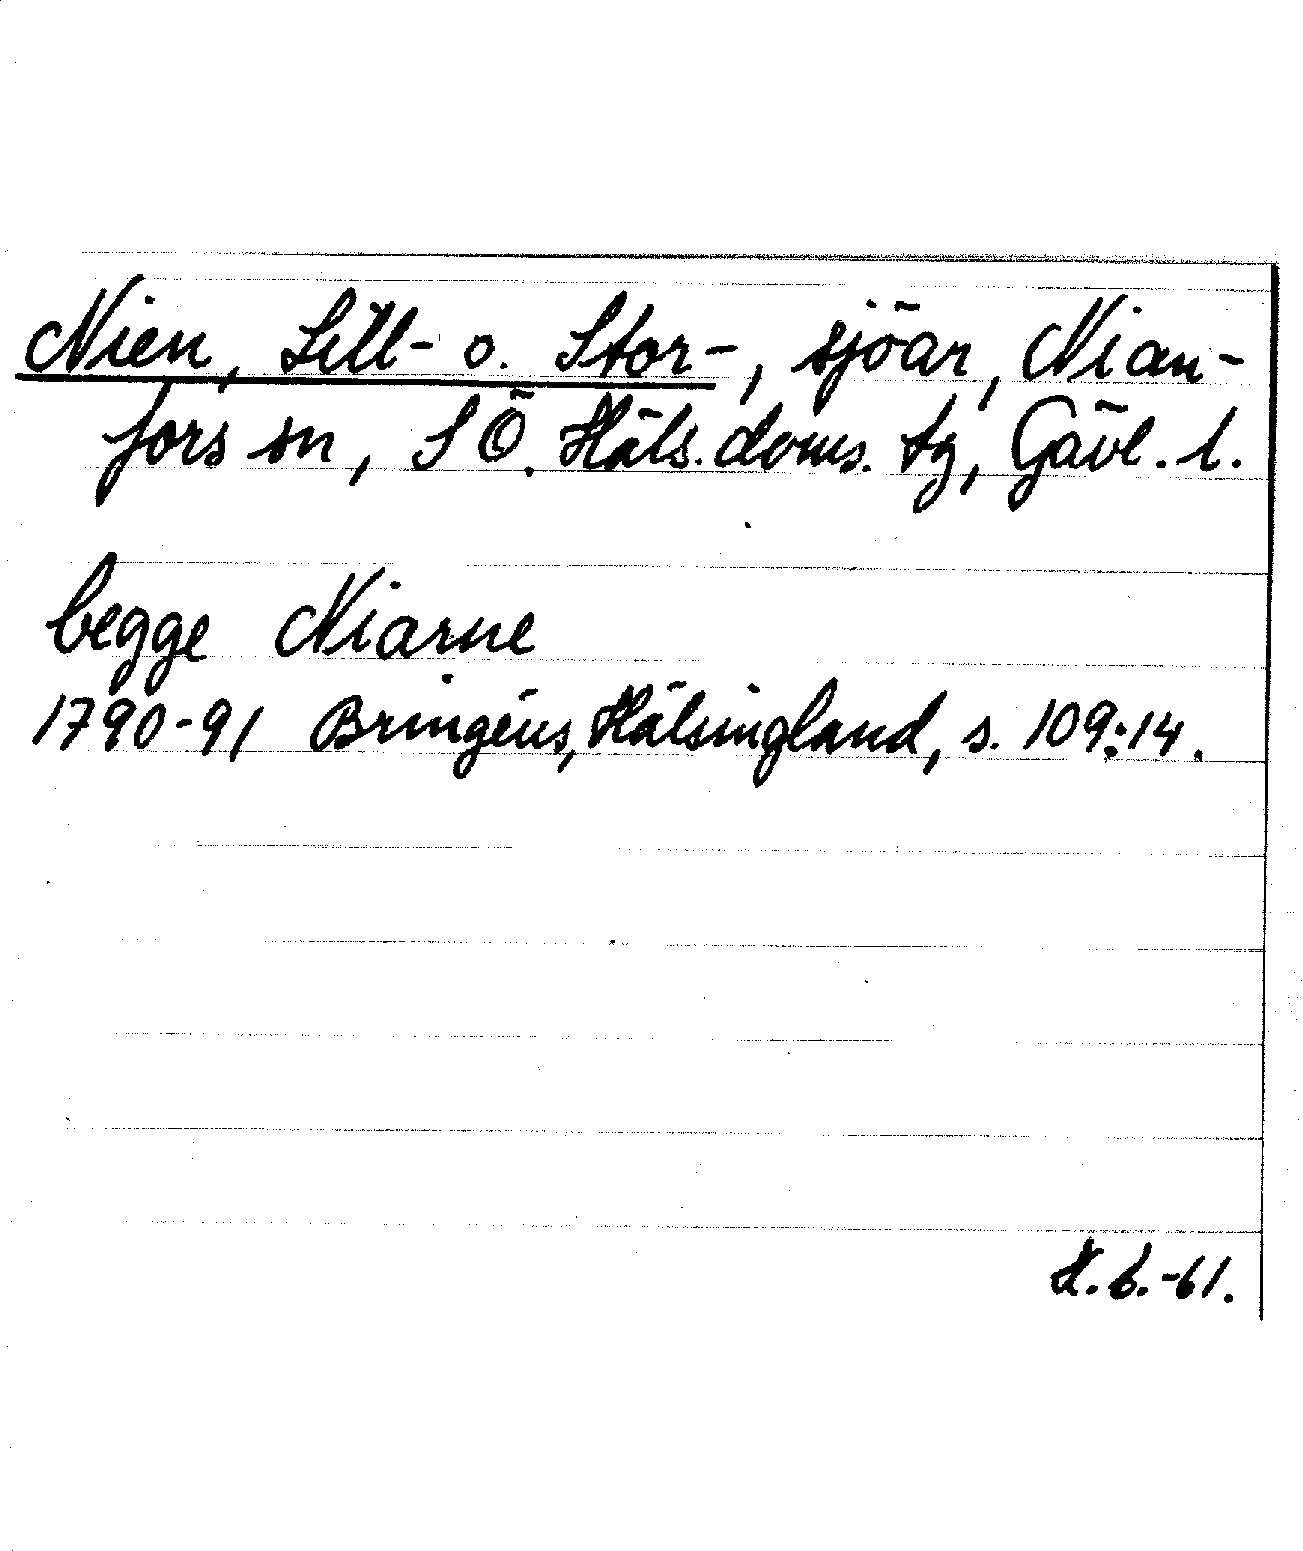 Nien, Lill- o. Stor-, sjöar, Nian-
fors sn, S Ö. Häls. doms. tg, Gävl. l.
begge Niarne
1790-91 Bringéus, Hälsingland, s. 109:14.
H.b.-61.